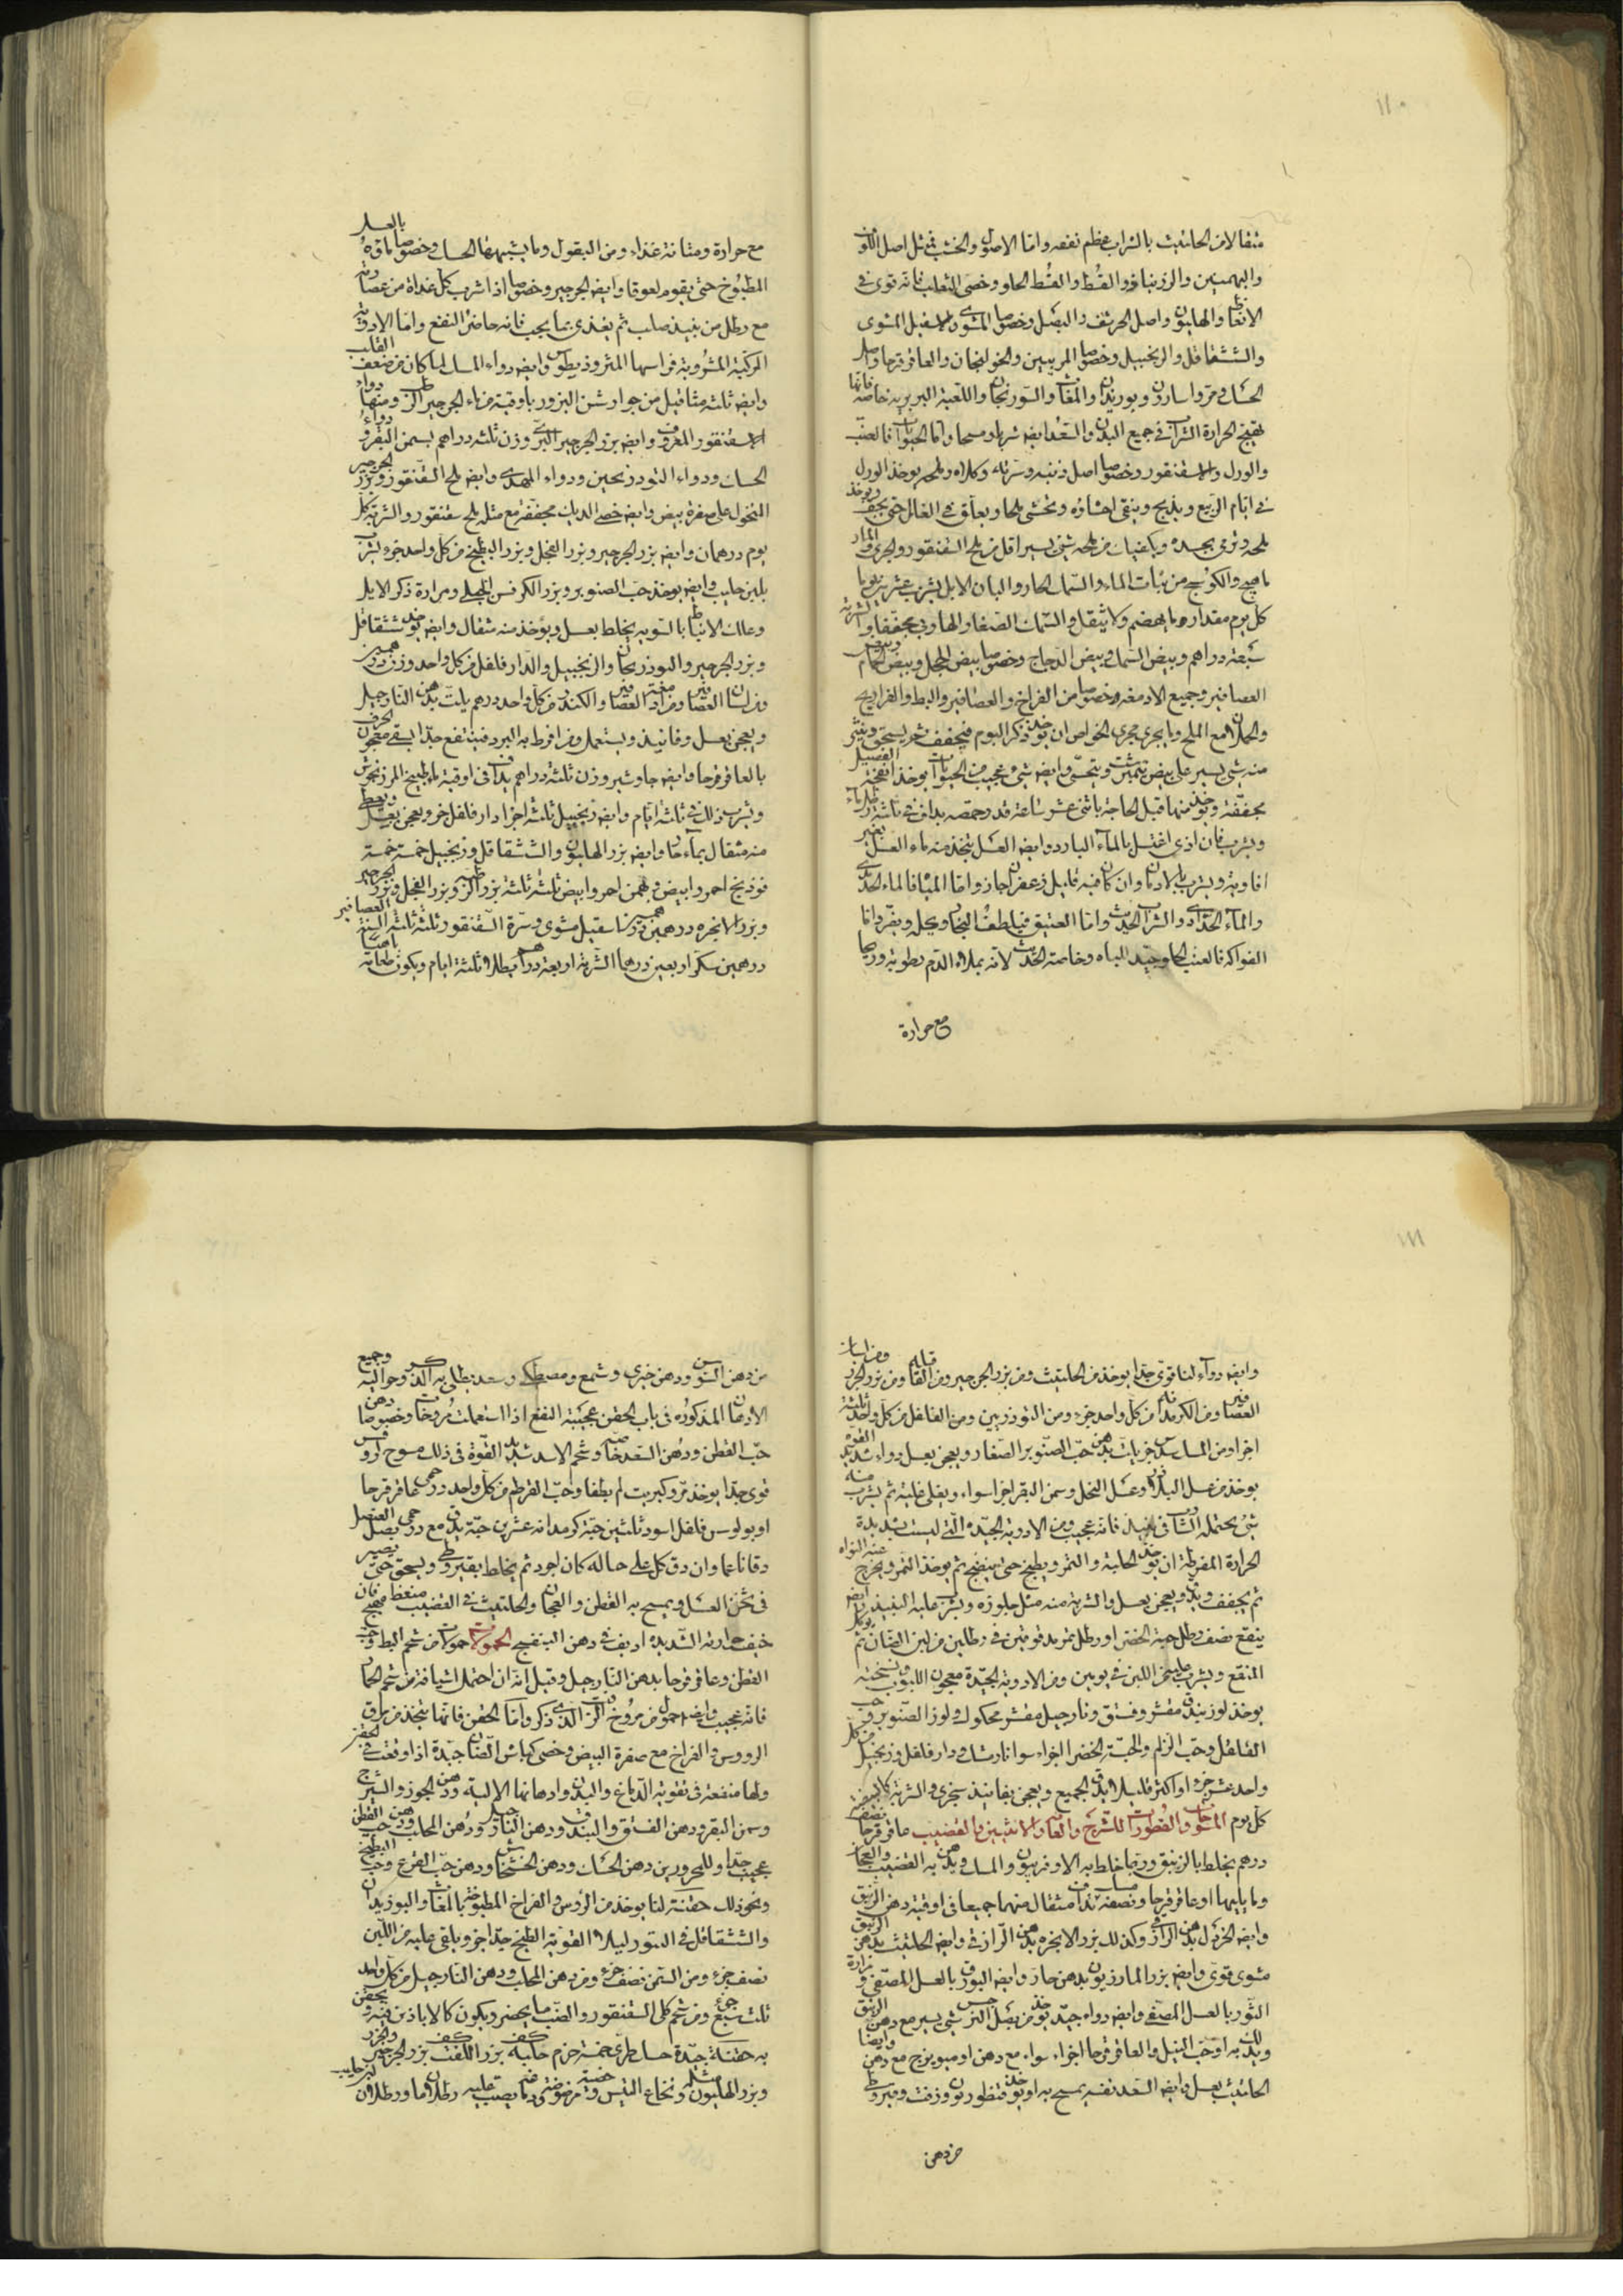 ١١٠
مثقالا من الحلتيث بالشراب عظم نفعه واما الاصول والخشب فمثل اصل اللوف
والبهمنين والزرنباد والقسط والقسط الحلو وخصى الثعلب فانه قوى فى
الانعاظ والهليون واصل الحرشف والبصل وخصوصا المشوى والاسقيل المشوى
والشقاقل والزنجبيل وخصوصا المربيين والخولنجان والعاقرقرحا واصل
الحسك ومرو اسارون وبوزيدان والمغاث والسورنجان واللعبة البربرية خاصة فانها
تهيج الحرارة فى جميع البدن والسعد ايضا شربا ومسحا واما الحيوانات فالضب
والورل والاسقنقور وخصوصا اصل ذنبه وسرته وكلاه وملحه يوخذ الورل
فى ايام الربيع ويذبح وينقى احشاؤه ويحشى ملحا ويعلق فى الظل حتى يجف ويوخذ
ملحه ويرمى بجسده ويكفيك من ملحه شئ يسير اقل من ملح السقنقور والجرى والمار
ماهيج والكوسج من نبات الماء والسمك الحار والبان الابل يشرب عشرين يوما
كل يوم مقدار ما يهضم ولا يثقل والسمك الصغار والهازبى مجففا والشربة
سبعة دراهم وبيض السمك وبيض الدجاج وخصوصا بيض الحجل وبيض الحمام وبيض
العصافير وجميع الادمغة وخصوصا من الفراخ والعصافير والبط والفراريج
والحملان مع الملح وما يجرى مجرى الخواص ان يؤخذ ذكر البوم فيجفف ثم يسحق وينثر
منه شئ يسير على بيض نيمرشت ويتحسى وايضا شئ عجيب من الحيوانات يوخذ انفحة الفصيل
مجففة ويؤخذ منها قبل الحاجة باثنى عشر ساعة قدر حمصة يداف فى ثلثة ارطال ماء
ويشرب فان اذى اغتسل بالماء البارد وايضا العسل يتخذ منه ماء العسل بغير
افاوية ويشرب بالادمان وان كان فيه قليل زعفران جاز واما المياه فالماء الحديدى
والماء الحديدى والشراب الحديث واما العتيق فيلطف البخار ويحله ويفر واما
الفواكه فالعنب الحلو جيد للباه وخاصة الحديث لانه يملاء الدم رطوبة وريحا
مع حرارة
مع حرارة ومتانة غذاء ومن البقول وما يشبهها الحسك وخصوصا ماؤه بالعسل
المطبوخ حتى يقوم لعوقا وايضا الجرجير وخصوصا اذا شرب كل غداة من عصارته
مع رطل من نبيذ صلب ثم يغذى بما يجب فانه حاضر النفع واما الادوية
المركبة المشروبة فراسها المثروذيطوس وايضا دواء المسك لما كان من ضعف القلب
وايضا ثلثة مثاقيل من جوارشن البزور باوقية من ماء الجرجير الرطب ومنها دواء
الاسقنقور المعروف وايضا بزر الجرجير البرى وزن ثلثة دراهم بسمن البقر ودواء
الحسك ودواء التودريجين ودواء المهدى وايضا ملح السقنقور وبزر الجرجير
المنخول على صفرة بيض وايضا خصى الديك مجففة مع مثله ملح سقنقور والشربة كل
يوم درهمان وايضا بزر الجرجير وبزر الفجل وبزر البطيخ من كل واحد جزء يشرب
بلبن حليب وايضا يوخذ حب الصنوبر وبزر الكرفس الجبلى ومرارة ذكر الايل
وعلك الانباط بالسوية يخلط بعسل ويؤخذ منه مثقال وايضا يؤخذ شقاقل
وبزر الجرجير والبوذريجان والزنجبيل والدار فلفل من كل واحد وزن درهمين
ومن لسان العصافير ومن ادمغة العصافير والكندر من كل واحد درهم يلت بدهن النارجيل
ويعجن بعسل وفانيذ ويستعمل ومن افرط به البرد فينتفع جدا بسقى معجون الحرف
بالعاقرقرحا وايضا جاوشير وزن ثلثة دراهم يداف فى اوقية ماء طبيخ المرزنجوش
ويشرب ذلك فى ثلثة ايام وايضا زنجبيل ثلثة اجزاء دار فلفل جزء ويعجن بعسل ويعطى
منه مثقال بماء حار وايضا بزر الهليون والشقاقل وزنجبيل خمسة خمسة
فوذنج احمر وابيض وبهمن احمر وابيض ثلثة ثلثة بزر الرطبة وبزر الفجل وبزر الجرجير
وبزر الانجرة درهمين وزنا اسقيل مشوى وسرة السقنقور ثلثة ثلثة السنة العصافير
درهمين سكر اربعين درهما الشربة اربعة دراهم بطلاء ثلثة ايام ويكون طعامه ايضا
١١١
وايضا دواء لنا قوى جدا يوخذ من الحلتيث ومن بزر الجرجير ومن القاقله ومن بزر الجزر ومن لسان
العصافير ومن الكرمدانه من كل واحد جزء ومن التودريين ومن الفلفل من كل واحد ثلثة
اجزاء ومن المسك سدس جزء يلت بدهن حب الصنوبر الصغار ويعجن بعسل دواء شديد القوة
يوخذ من عسل البلادر وعسل النحل وسمن البقر اجزاء سواء ويغلى غلية ثم يشرب منه
شئ يحتمله الشارب فى نبيذ فانه عجيب ومن الادوية الجيدة التى ليست بشديدة
الحرارة المفرطة ان يؤخذ الحلبة والتمر ويطبخ حتى ينضج ثم يوخذ التمر ويخرج عنه النواه
ثم يجفف ويدق ويعجن بعسل والشربة منه مثل جلوزه ويشرب عليه النبيذ وايضا
ينقع نصف رطل حبة الخضرا ورطل تمر يدقوتين فى رطلين من لبن الضان ثم يوكل
المنقع ويشرب عليه من اللبن فى يومين ومن الادوية الجيدة معجون اللبوب ونسخته
يوخذ لوز بندق مقشر وفستق ونارجيل مقشر محكوك ولوز الصنوبر وحب
الفلفل وحب الزلم والحبة الخضرا اجزاء سوا نارمشك ودار فلفل وزنجبيل من كل
واحد عشر جزء او اكثر قليلا يدق الجميع ويعجن بفانيذ سجزى والشربة كالبيضة
كل يوم المسوحات والقطورات للشرج والعانة والانثيين والقضيب عاقرقرحا نصف
درهم يخلط بالزنبق وربما خلط به الاوفربيون والمسك ويدهن به القضيب والعجان
وما يليهما او عاقرقرحا ونصفه مسك يداف مثقال منهما جميعا فى اوقية دهن الزنبق
وايضا الخردل بدهن الرازقى وكذلك بزر الانجره بدهن الرازقى وايضا الحلتيث بدهن الزنبق
مشوى قوى وايضا بزر المازريون بدهن حار وايضا البورق بالعسل المصفى ومرارة
الثور بالعسل المصفى وايضا دواء جيد يؤخذ من بصل النرجس شئ يسير مع دهن الزنبق
ويدلك به او حب النيل والعاقرقرحا اجزاء سواء مع دهن او ميويزج مع دهن وايضا
الحلتيث بعسل وايضا السعد نفسه يمسح به او يؤخذ قنطوريون وزفت وقيروطى
من دهن
من دهن السوسن ودهن خيرى وشمع ومصطكى وسعد يطلى به الذكر وحواليه وجميع
الادهان المذكوره فى باب الحقن عجيبة النفع اذا استعملت مروخا وخصوصا دهن
حب القطن ودهن السعد خاصة وشحم الاسد شديد القوة فى ذلك مسوح لروفس
قوى جدا يوخذ مر وكبريت لم يطفا وحب القرطم من كل واحد درهمى عاقرقرحا
اوبولوس فلفل اسود ثلثين حبة كرمدانه عشرين حبة يدق مع درهمى بصل العنصل
دقا ناعما وان دق كل على حاله كان اجود ثم يخلط بقيروطى ويسحق حتى يصير
فى ثخن العسل ويمسح به القطن والعجان والحلتيث فى القضيب منعظ مهيج فان
خيف حرارته الشديدة اديف فى دهن البنفسج الحمولات حمولات من شحم البط وحب
القطن وعاقرقرحا بدهن النارجيل وقيل انه ان احتمل اشيافة من شحم الحمار
فانه عجيب وايضا حمول من مروخ الرب الذى ذكر واما الحقن فانها يتخذ من مرق
الرووس والفراخ مع صفرة البيض وخصى كباش الضان جيدة اذا وقعت فى الحقن
ولها منفعة فى تقوية الدماغ والبدن وادهانها الالية ودهن الجوز والشيرج
وسمن البقر ودهن الفستق والبندق ودهن النارجيل ودهن المحلب ودهن حب القطن
عجيب جدا وللمحرورين دهن الحسك ودهن الخشخاش ودهن حب القرع وحب البطيخ
ونحو ذلك حقنة لنا يوخذ من الروس والفراخ المطبوخة بالمغاث والبوزيدان
والشقاقل فى التنور ليلا القوية الطبخ جدا جزء ويلقى عليه من اللبن
نصف جزء ومن السمن نصف جزء ومن دهن المحلب ودهن النارجيل من كل واحد
ثلث سبع جزء ومن شحم كلى السقنقور والضب ما يحضر ويكون كالابازير فيه ويحقن
به حقنة جيدة حسك طرى خمسة حزم حلبة كف بزر اللفت كف بزر الجرجير والجزر
وبزر الهليون مثله ونخاع التيس وخصيته مرضوضتى ما يصب عليه رطلان ماء ورطلان لبن حليب